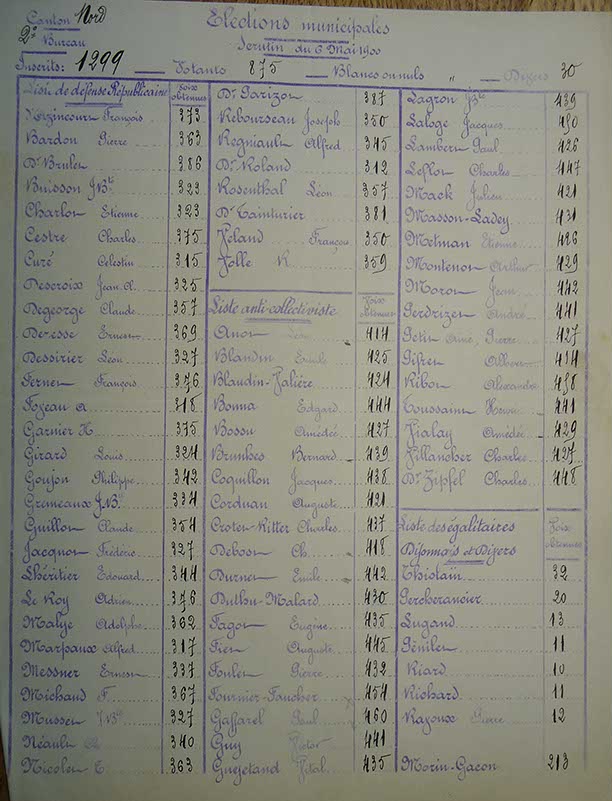 Canton Nord
2e Bureau
Elections municipales
Scrutin du 6 Mai 1900
Inscrits: 1299 Votants 875 Blancs ou nuls " Divers 30
Liste de défense Républicaine Voix obtenues
d'Azincourt François 373
Bardon Pierre 363
Dr Brulet 386
Buisson J.Bte 323
Charlot Etienne 323
Cestre Charles 375
Curé Celestin 315
Descroix Jean Cl. 325
Degeorge Claude 357
Devesse Ernest 369
Dessirier Léon 327
Ferner François 376
Foyeau A 318
Garnier H 375
Girard Louis 324
Goujon Philippe 342
Gremeaux J.Bte 334
Guillon Claude 354
Jacquot Frédéric 327
Lhéritier Edouard 344
Le Roy Adrien 376
Malye Adolphe 362
Marpaux Alfred 317
Messner Ernest 337
Michaud F. 367
Musset J.Bte 327
Néault 340
Nicolet E. 363
Dr Parizot 387
Rebourseau Joseph 350
Regniault Alfred 345
Dr Roland 312
Rosenthal Léon 357
Dr Tainturier 381
Veland François 350
Volle R. 359
Liste anti-collectiviste Voix obtenues
Anot Léon 414
Blandin Emile 425
Blaudin-Valière 424
Bonna Edgard 444
Bossu Amédée 427
Brunhes Bernard 439
Coquillon Jacques 438
Corduan Auguste 421
Croten-Ritter Charles 437
Debost Ch. 418
Durnet Emile 442
Duthu-Malard 430
Fagot Eugène 435
Fiet Auguste 445
Foulet Pierre 432
Fournier-Faucher 454
Gaffarel Paul 460
Guy Victor 441
Guéjetand Vital 435
Lagron J.Bte 439
Laloge Jacques 450
Lambert Paul 426
Leflot Charles 447
Mack Julien 421
Masson-Ladey 431
Metman Etienne 426
Montenot Arthur 429
Morot Jean 442
Perdrizet André 441
Petit Aimé, Pierre 427
Pifret Albert 414
Ribot Alexandre 438
Toussaint Henri 441
Vialay Amédée 429
Villancher Charles 427
Dr Zipfel Charles 448
Liste des égalitaires Voix obtenues
Dijonnais et Divers
Tholain 32
Percherancier 20
Lugand 13
Génilet 11
Riard 10
Richard 11
Rajoux Pierre 12
Morin-Gacon 213